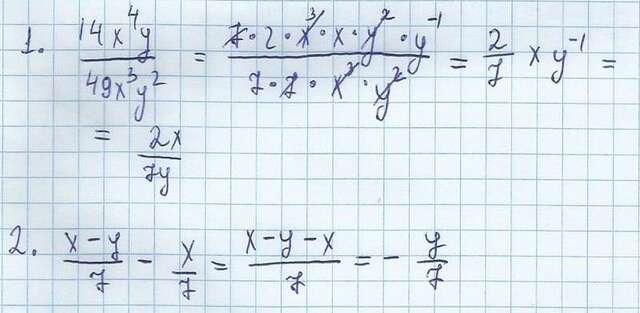 1. 14x⁴y / 49x³y² = 7·2·x³·x·y²·y⁻¹ / 7·7·x³·y² = 2/7 xy⁻¹ =
= 2x / 7y
2. x-y / 7 - x / 7 = x-y-x / 7 = - y / 7